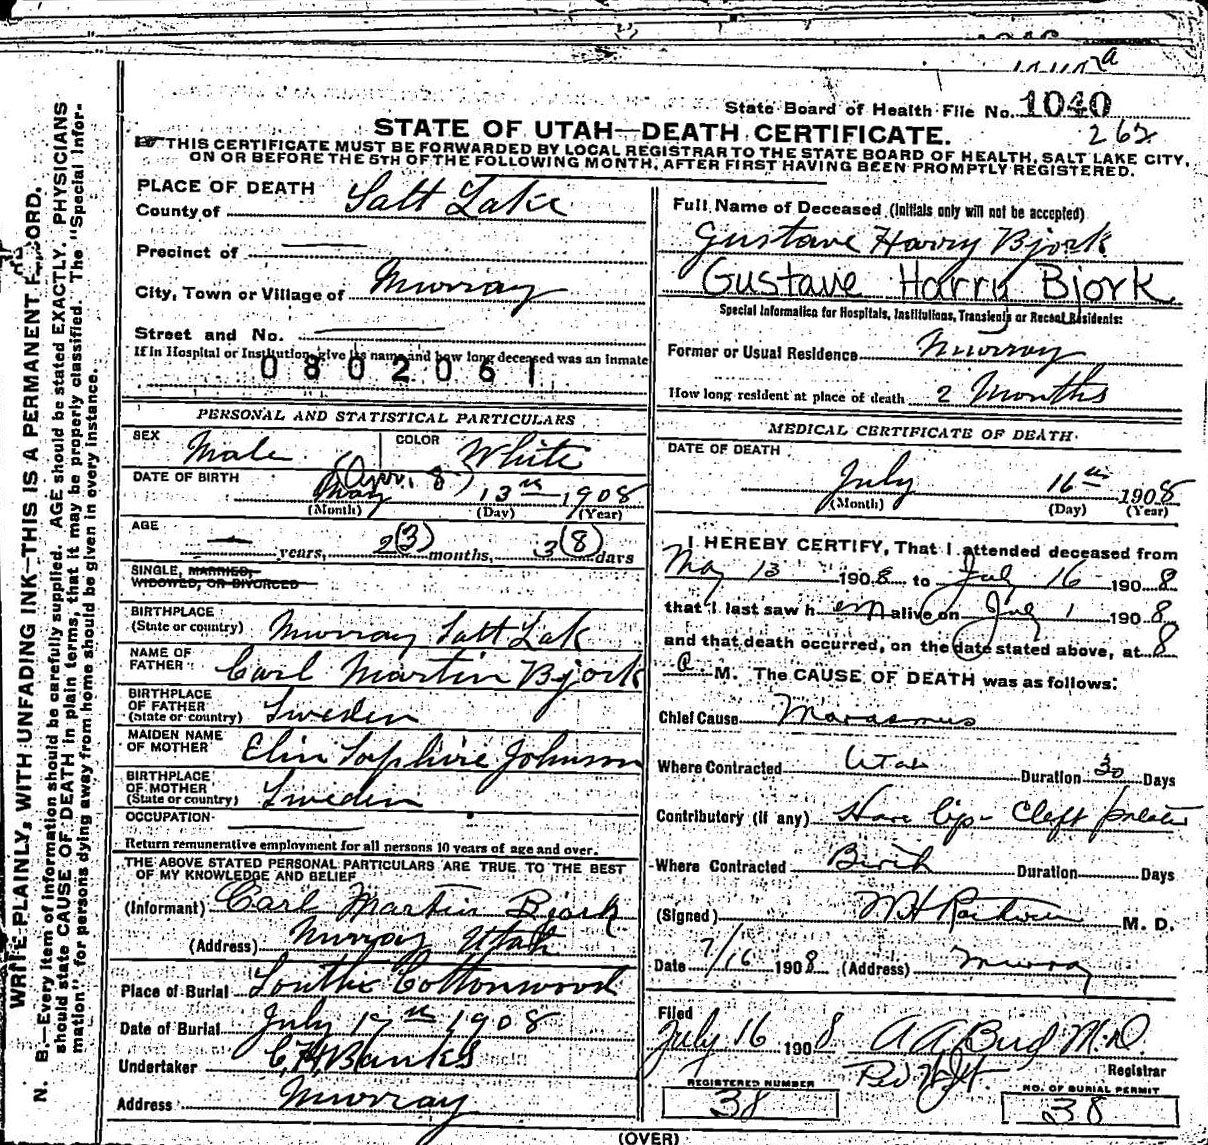 State Board of Health File No. 1040
262
STATE OF UTAH—DEATH CERTIFICATE.
THIS CERTIFICATE MUST BE FORWARDED BY LOCAL REGISTRAR TO THE STATE BOARD OF HEALTH, SALT LAKE CITY,
ON OR BEFORE THE 5TH OF THE FOLLOWING MONTH, AFTER FIRST HAVING BEEN PROMPTLY REGISTERED.
WRITE PLAINLY, WITH UNFADING INK—THIS IS A PERMANENT RECORD.
N. B.—Every item of information should be carefully supplied. AGE should be stated EXACTLY. PHYSICIANS
should state CAUSE OF DEATH in plain terms, that it may be properly classified. The "Special Infor-
mation" for persons dying away from home should be given in every instance.
PLACE OF DEATH
County of Salt Lake
Precinct of —
City, Town or Village of Murray
Street and No. —
If in Hospital or Institution, give its name and how long deceased was an inmate
0802061
PERSONAL AND STATISTICAL PARTICULARS
SEX Male COLOR White
DATE OF BIRTH (Apr. 8) May 13th 1908
(Month) (Day) (Year)
AGE — years, 2 (3) months, 3 (8) days
SINGLE, MARRIED,
WIDOWED, OR DIVORCED
BIRTHPLACE
(State or country) Murray Salt Lak
NAME OF
FATHER Carl Martin Bjork
BIRTHPLACE
OF FATHER
(State or country) Sweden
MAIDEN NAME
OF MOTHER Elin Sophine Johnson
BIRTHPLACE
OF MOTHER
(State or country) Sweden
OCCUPATION —
Return remunerative employment for all persons 10 years of age and over.
THE ABOVE STATED PERSONAL PARTICULARS ARE TRUE TO THE BEST
OF MY KNOWLEDGE AND BELIEF
(Informant) Carl Martin Bjork
(Address) Murray Utah
Place of Burial South Cottonwood
Date of Burial July 17th 1908
Undertaker Banks
Address Murray
Full Name of Deceased (Initials only will not be accepted)
Gustave Harry Bjork
Gustave Harry Bjork
Special Information for Hospitals, Institutions, Transients or Recent Residents:
Former or Usual Residence Murray
How long resident at place of death 2 Months
MEDICAL CERTIFICATE OF DEATH
DATE OF DEATH
July 16th 1908
(Month) (Day) (Year)
I HEREBY CERTIFY, That I attended deceased from
May 13 1908 to July 16 1908
that I last saw h em alive on July 1 1908
and that death occurred, on the date stated above, at 8
a M. The CAUSE OF DEATH was as follows:
Chief Cause Marasmus
Where Contracted Utah Duration 30 Days
Contributory (if any) Hare lip - Cleft palate
Where Contracted Birth Duration Days
(Signed) M. D.
Date 7/16 1908 (Address) Murray
Filed
July 16 1908 M.D.
Registrar
REGISTERED NUMBER
38
NO. OF BURIAL PERMIT
38
(OVER)